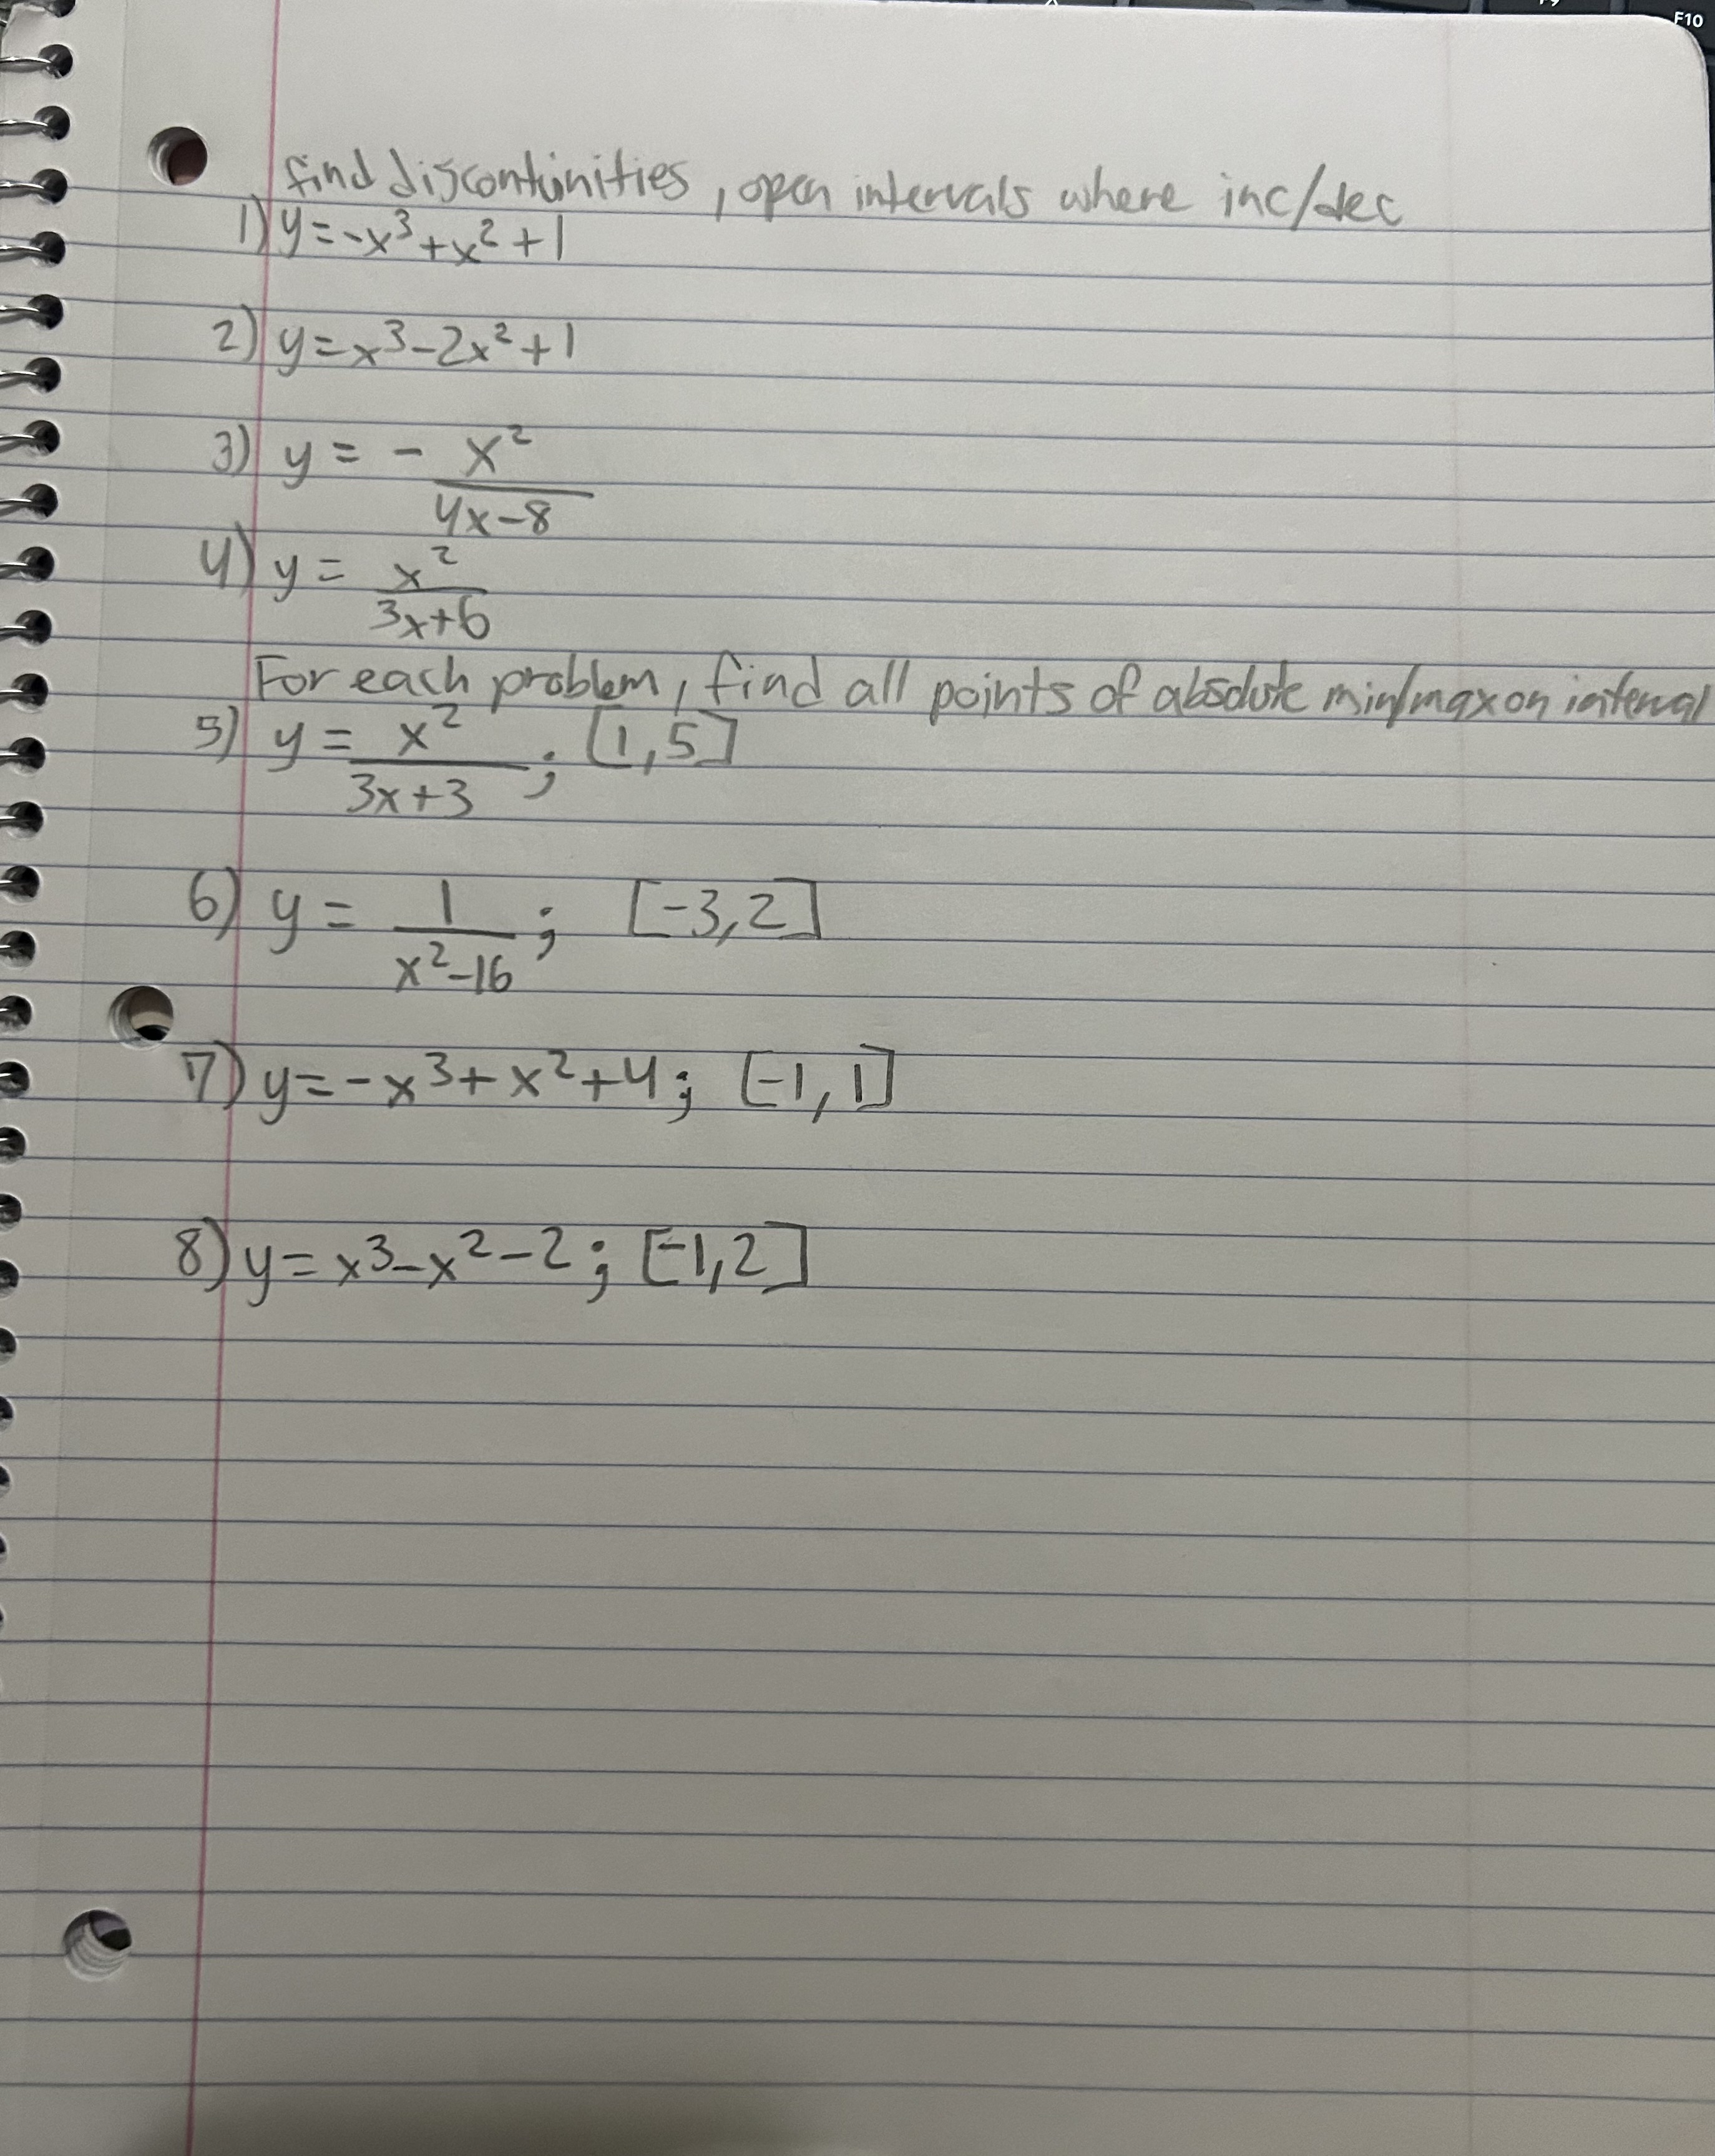 F10
find discontinities, open intervals where inc/dec
1) y=-x³+x²+1
2) y=x³-2x²+1
3) y = - x²
4x-8
4) y = x²
3x+6
For each problem, find all points of absolute min/max on interval
5) y = x² ; [1,5]
3x+3
6) y = 1 ; [-3,2]
x²-16
7) y=-x³+x²+4; [-1,1]
8) y=x³-x²-2; [-1,2]